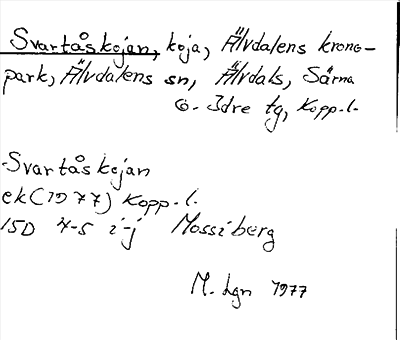 Svartåskojan, koja, Älvdalens krono-
park, Älvdalens sn, Älvdals, Särna
o. Idre tg, Kopp. l.
Svartåskojan
ek (1977) Kopp. l.
15D 4-5 i-j Mossiberg
M. Lgn 1977